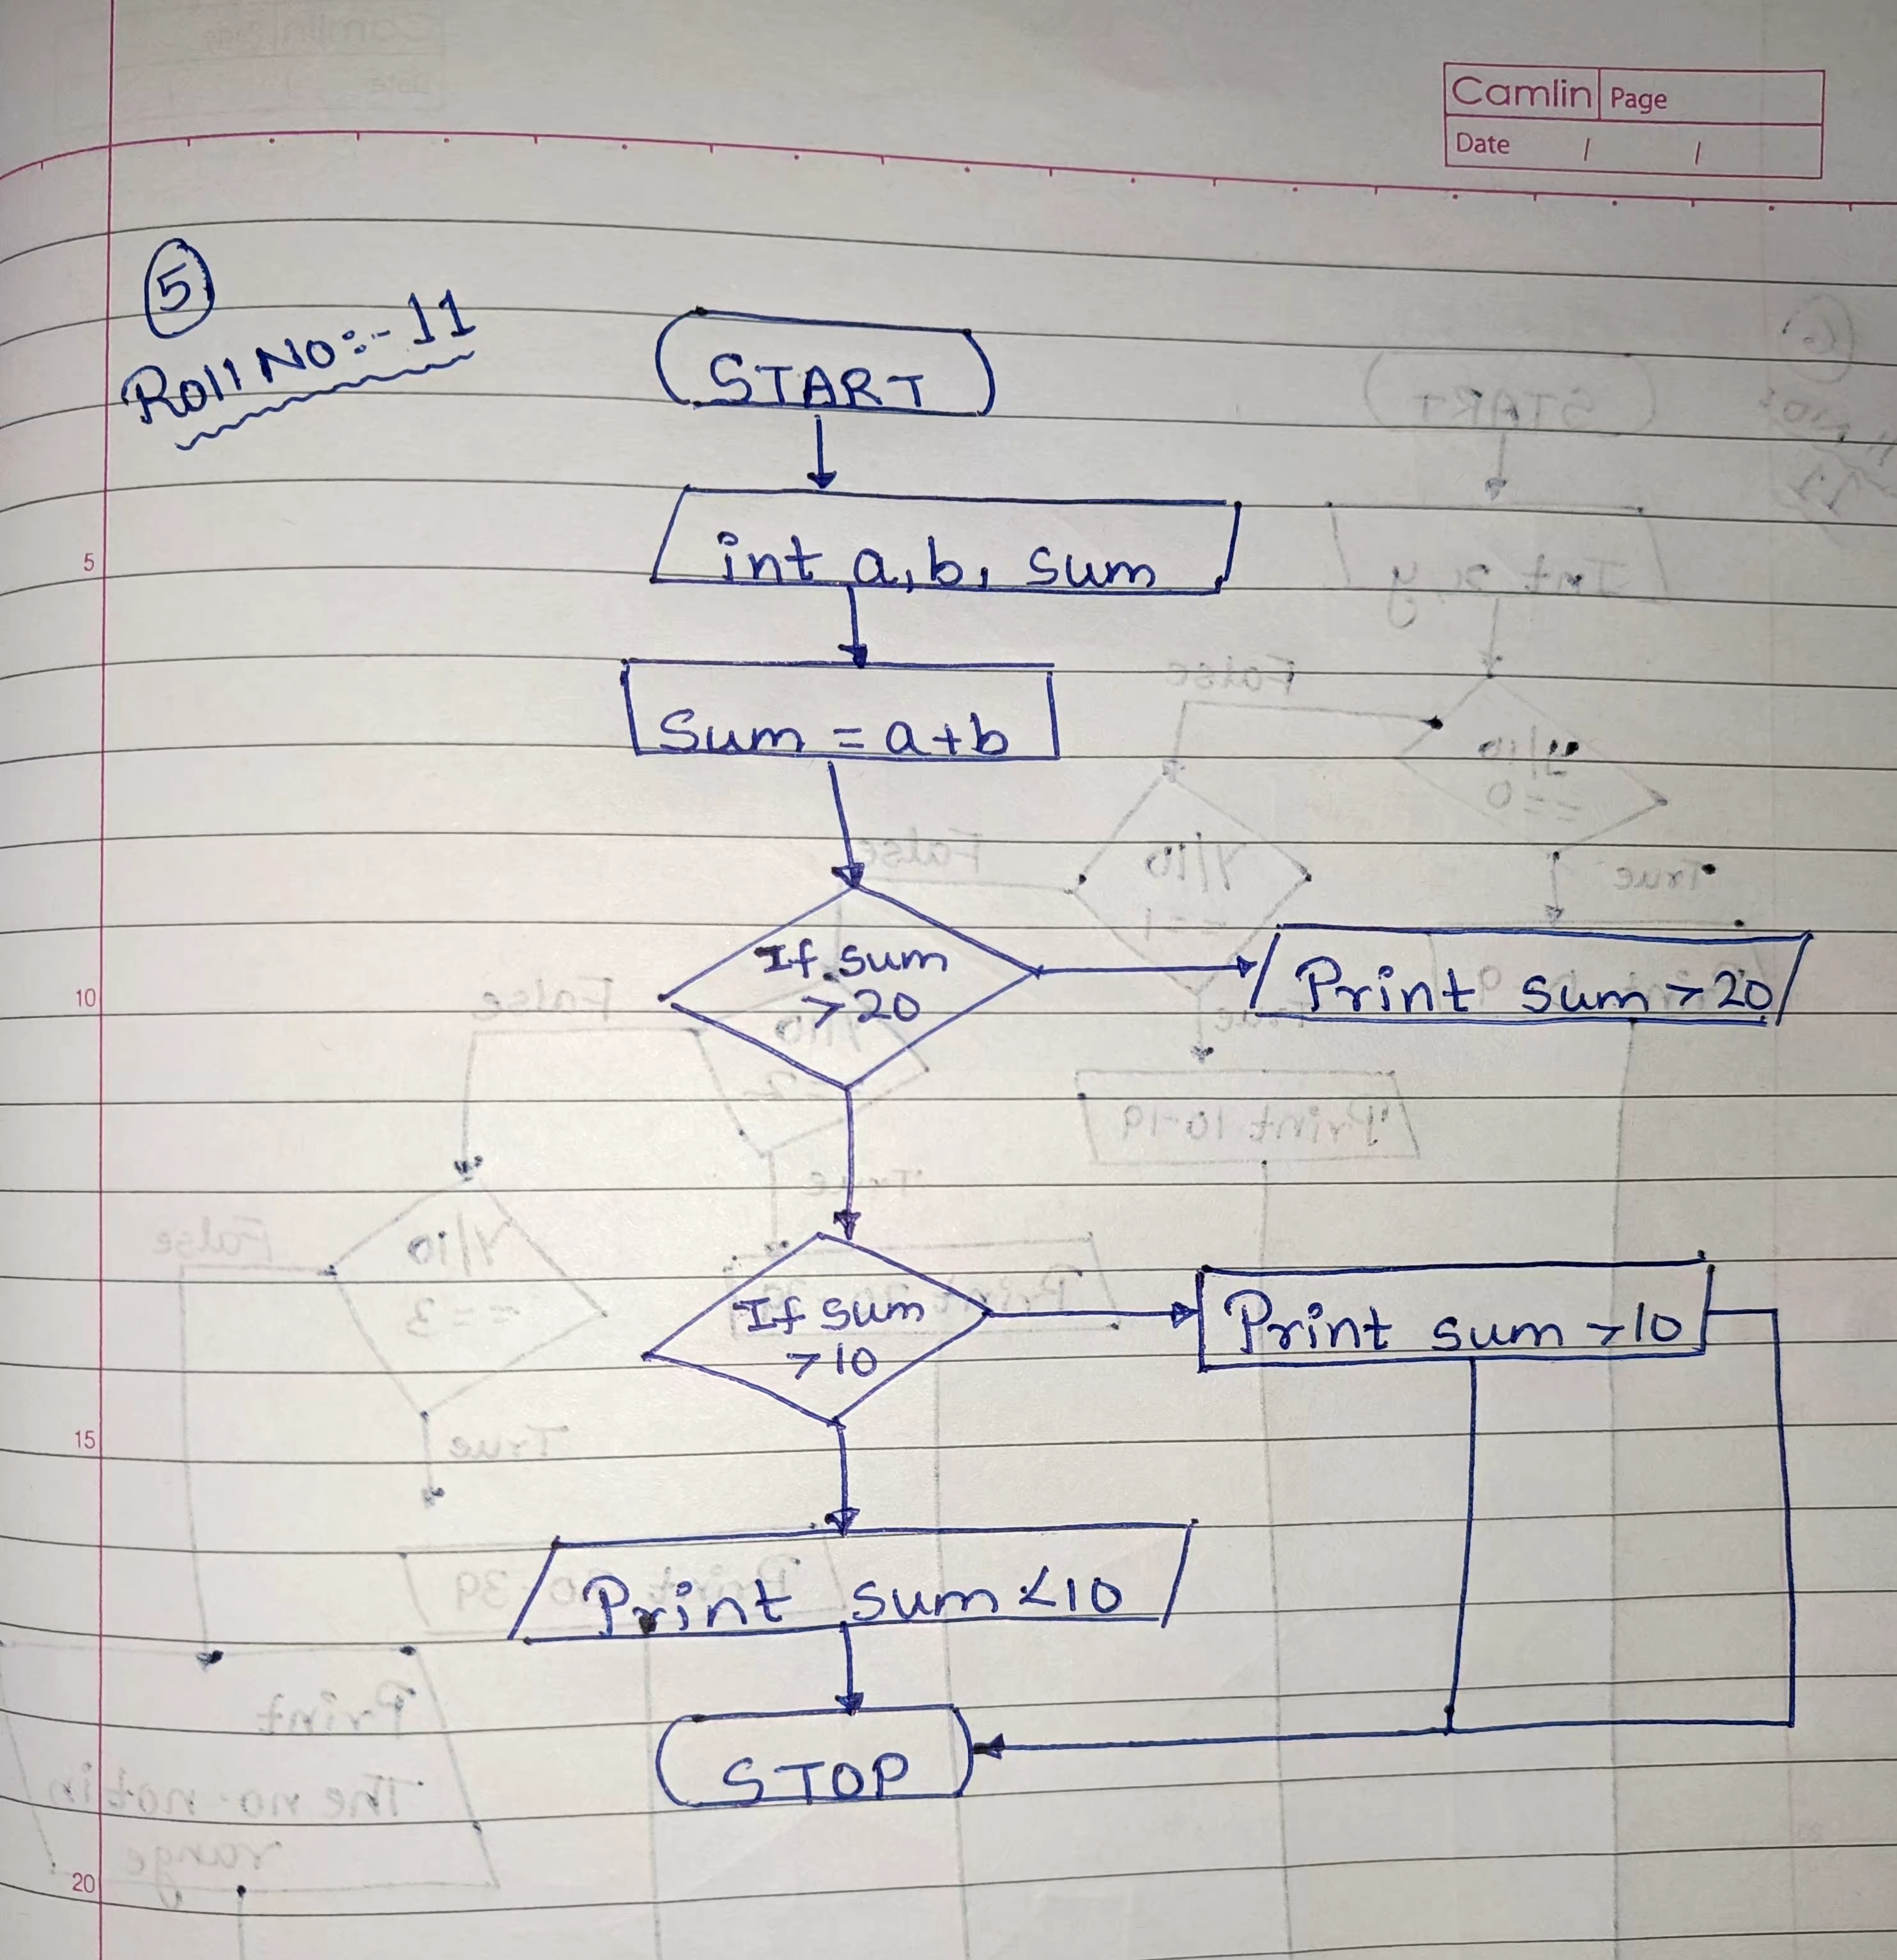 Camlin Page
Date / /
5
Roll No:- 11
START
int a, b, sum
5
Sum = a+b
If sum
>20
Print sum >20
10
If sum
>10
Print sum >10
15
Print sum <10
STOP
20